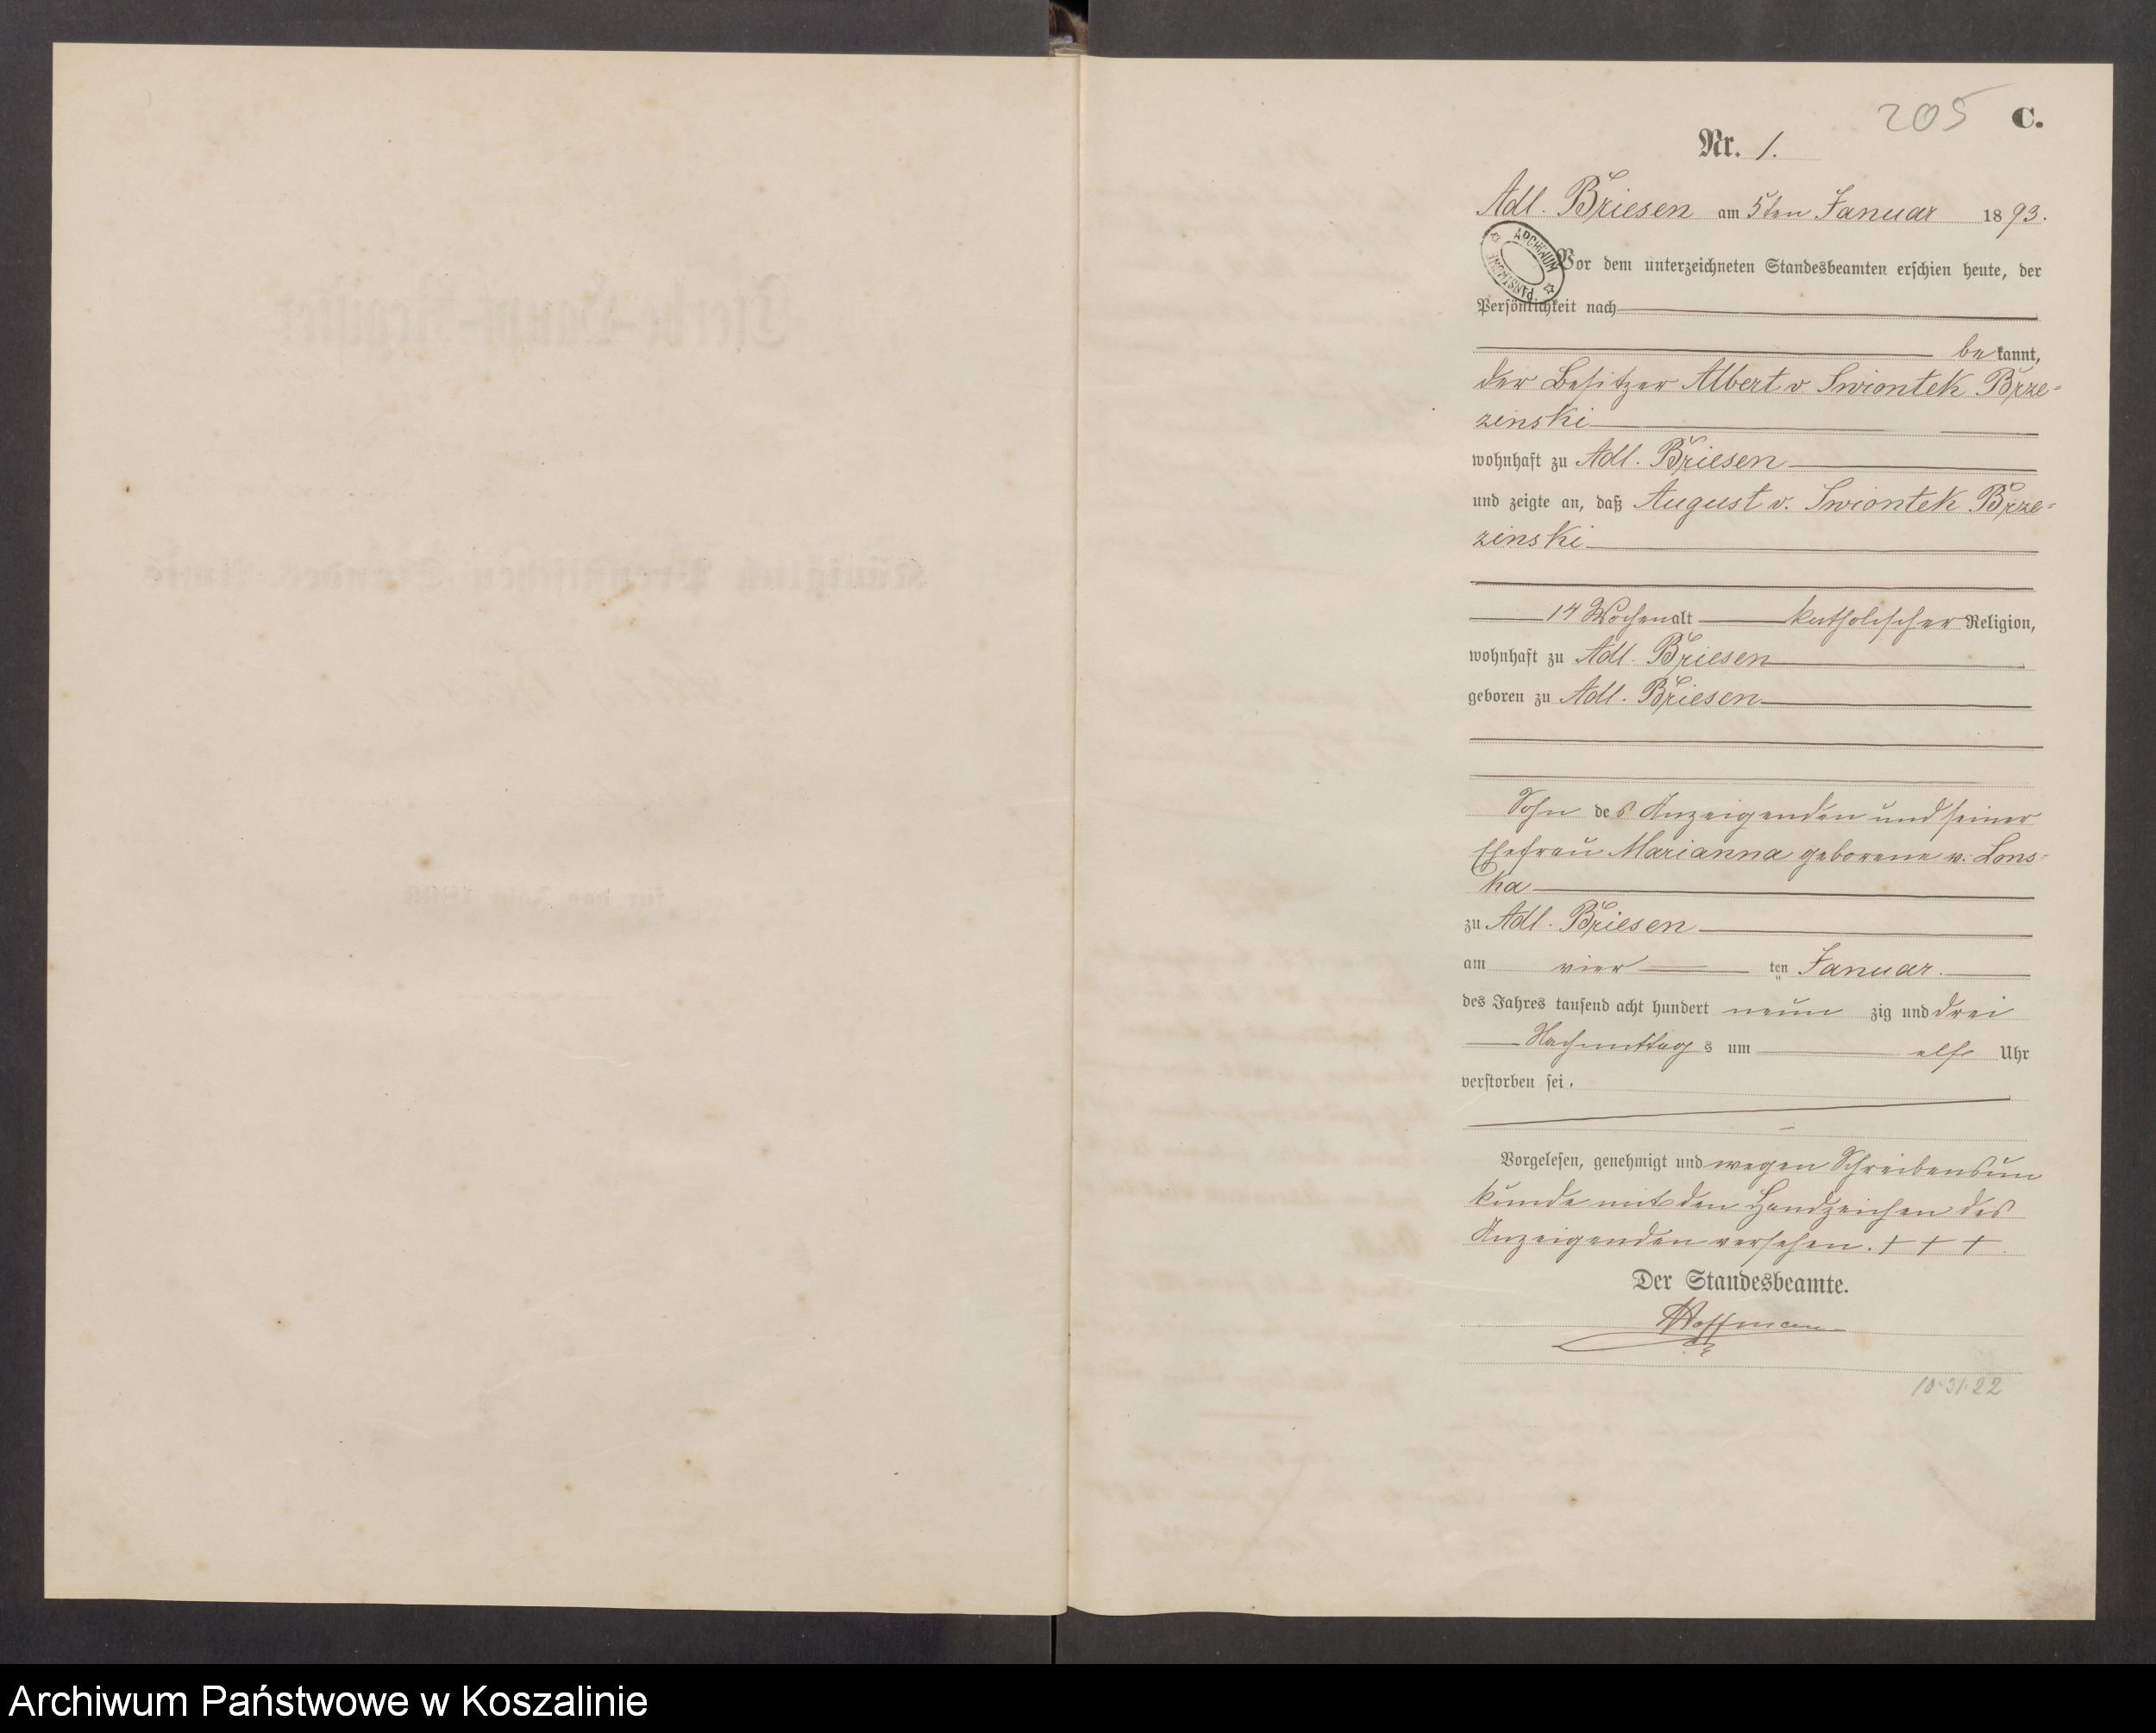 205 C.
Nr. 1.
Adl. Briesen am 5ten Januar 1893.
ARCHIWUM PAŃSTWOWE
Vor dem unterzeichneten Standesbeamten erschien heute, der
Persönlichkeit nach
bekannt,
der Besitzer Albert v Swiontek Brze-
zinski
wohnhaft zu Adl. Briesen
und zeigte an, daß August v. Swiontek Brze-
zinski
14 Wochen alt katholischer Religion,
wohnhaft zu Adl. Briesen
geboren zu Adl. Briesen
Sohn des Anzeigenden und seiner
Ehefrau Marianna geborene v. Lons-
ka
zu Adl. Briesen
am vier ten Januar.
des Jahres tausend acht hundert neun zig und drei
Nachmittags um elf Uhr
verstorben sei.
Vorgelesen, genehmigt und wegen Schreibensun
kunde mit den Handzeichen des
Anzeigenden versehen. + + +
Der Standesbeamte.
Hoffmann
10.31.22
Archiwum Państwowe w Koszalinie